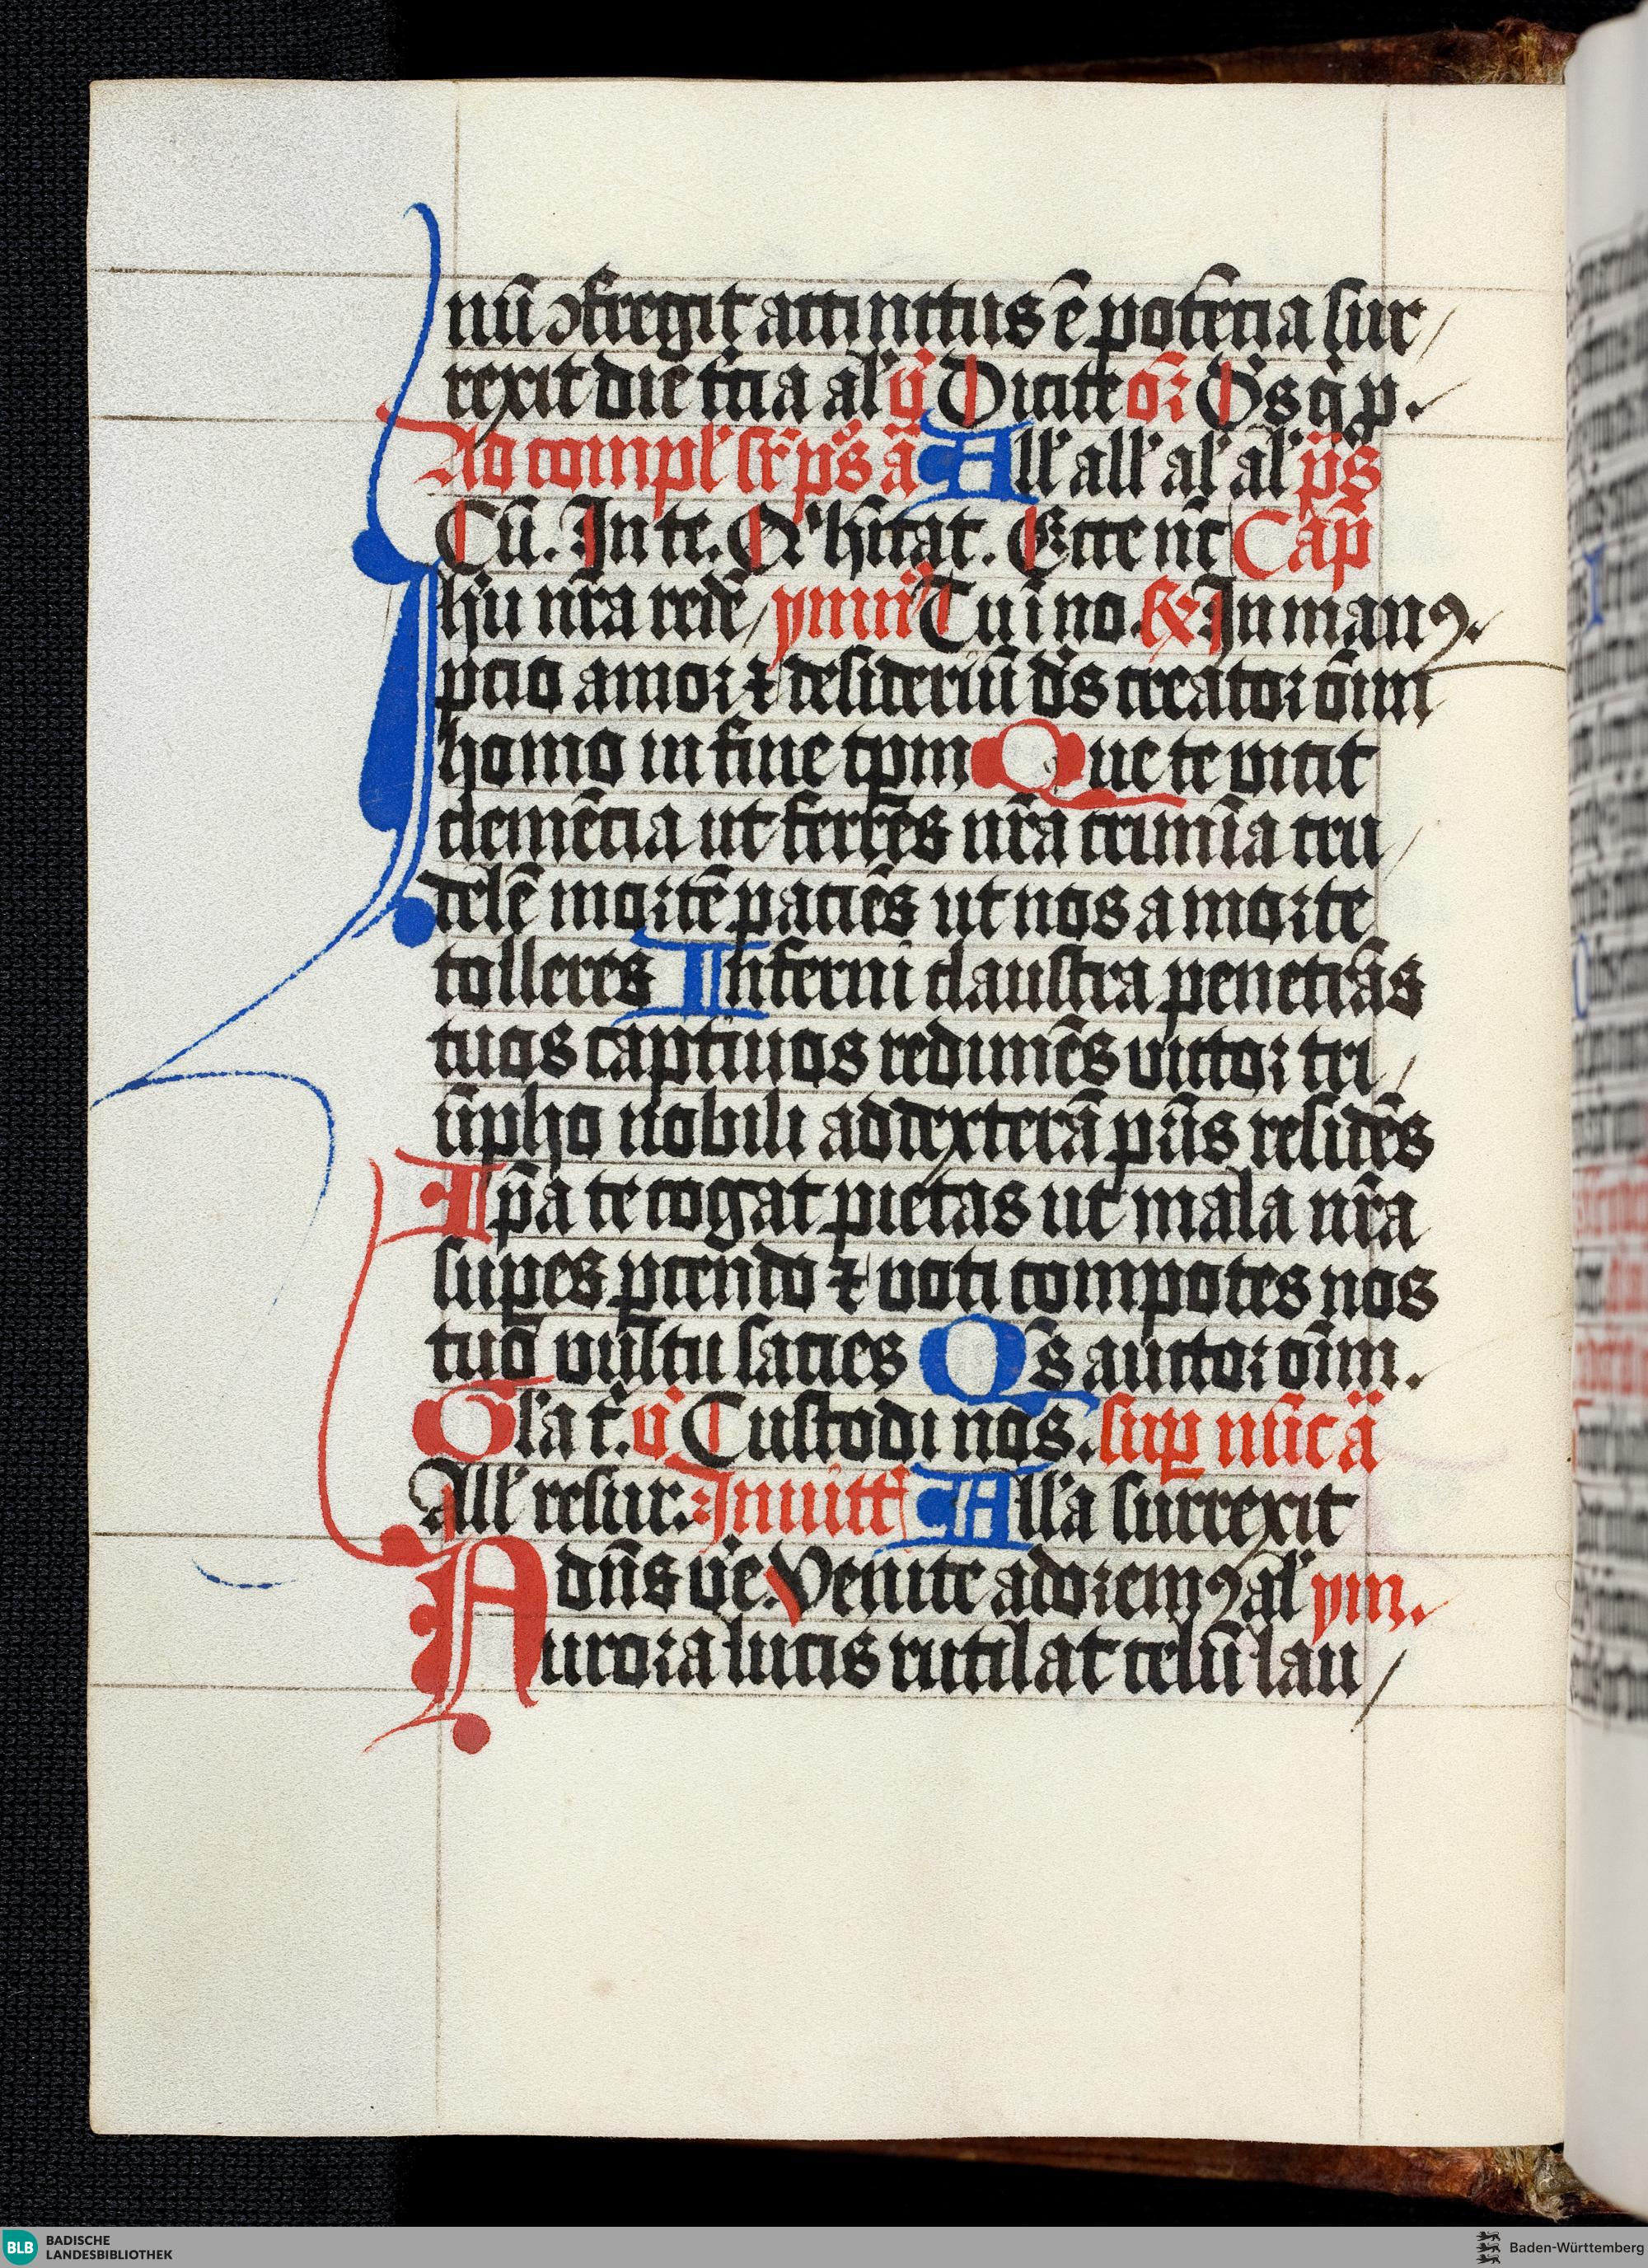 nū ꝯfregit attinitus ē potēcia sur/
rexit die t͛cia al' v̾ Dicite or̄ D̄s q̇ p.
Ad compl' sr̄ p̄s ā All' all' al' al' p̄s
Cū. In te. Qⁱ hītat. Ecce nūc Cap̄
Ihū nr̄a redē/ ymn̄ Tu ī no. R̵ In manꝰ.
pcio amor ⁊ desideriū ds̄ creator oīm
homo in fine tpm Que te vicit
clemēcia ut ferrēs nr̄a crimīa cru/
delē mortē paciēs ut nos a morte
tolleres Inferni claustra penetrās
tuos captiuos redimēs victor tri/
ūpho nobili ad dexterā pr̄is residēs
Ip̄a te cogat pietas ut mala nr̄a
suꝑes ꝑcendo ⁊ voti compotes nos
tuo vultu sacies Qs auctor oīm.
Gl'a t͛. v̾ Custodi nos. suꝑ nūc ā
All' resur. Inuitt All'a surrexit
dn̄s v̾e. Venite adoremꝰ al' ym.
Aurora lucis rutilat celū lau/
BLB BADISCHE
LANDESBIBLIOTHEK
Baden-Württemberg